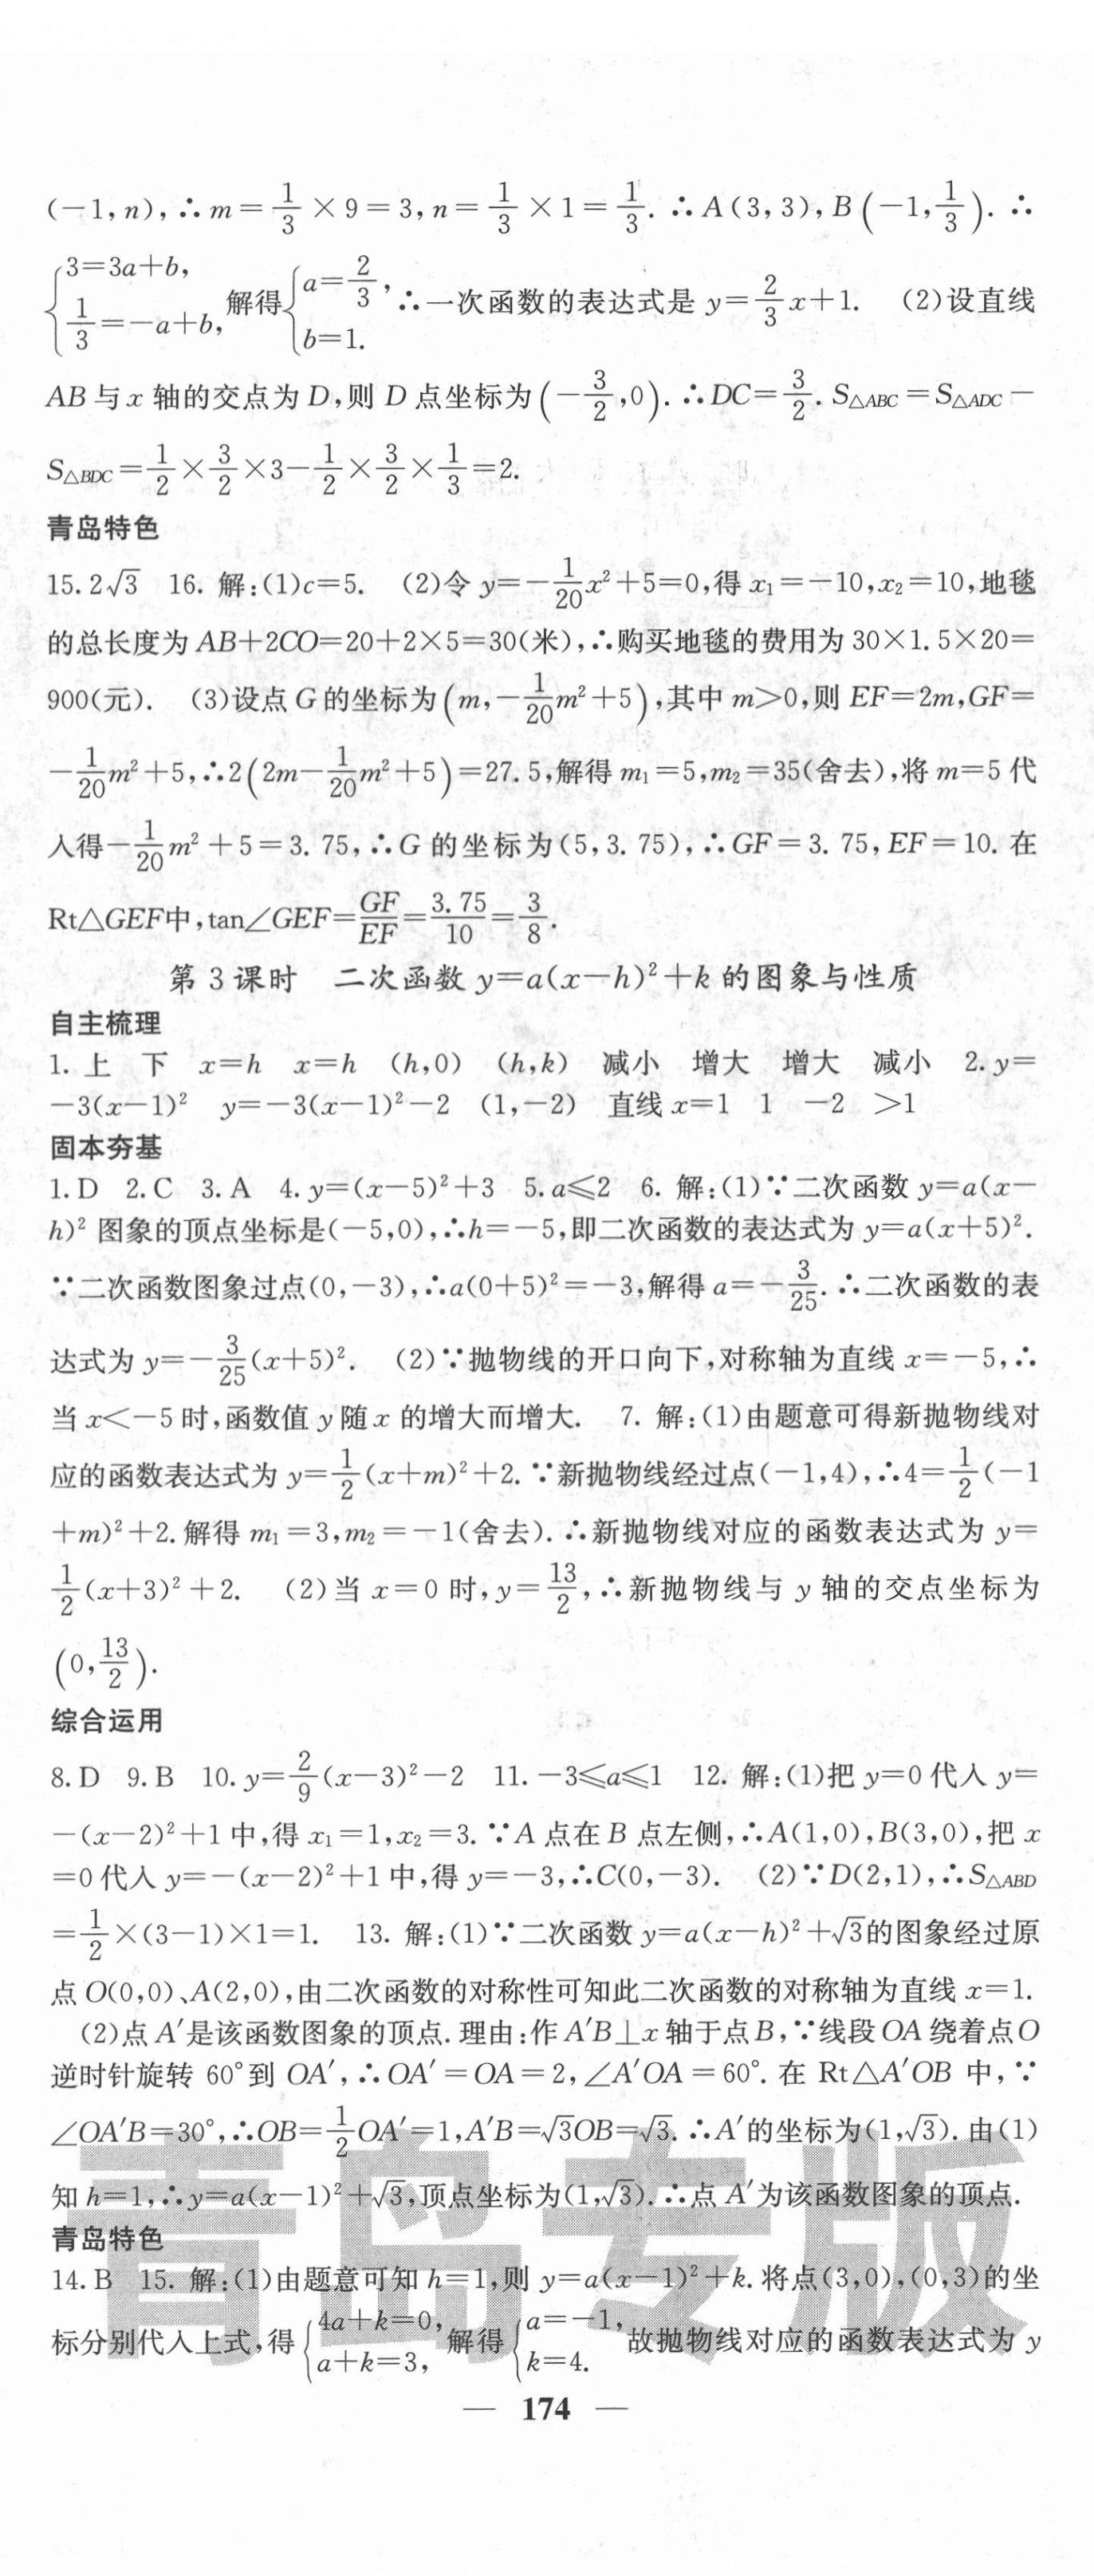 (−1, n), ∴ m = 1/3 × 9 = 3, n = 1/3 × 1 = 1/3. ∴ A(3, 3), B(−1, 1/3). ∴
{3=3a+b, 1/3=−a+b, 解得{a=2/3, b=1. ∴一次函数的表达式是 y=2/3x+1. (2)设直线
AB 与 x 轴的交点为 D,则 D 点坐标为(−3/2,0). ∴DC=3/2. S△ABC=S△ADC−
S△BDC=1/2×3/2×3−1/2×3/2×1/3=2.
青岛特色
15. 2√3 16. 解:(1)c=5. (2)令 y=−1/20x²+5=0,得 x₁=−10,x₂=10,地毯
的总长度为 AB+2CO=20+2×5=30(米),∴购买地毯的费用为 30×1.5×20=
900(元). (3)设点 G 的坐标为(m,−1/20m²+5),其中 m>0,则 EF=2m,GF=
−1/20m²+5,∴2(2m−1/20m²+5)=27.5,解得 m₁=5,m₂=35(舍去),将 m=5 代
入得−1/20m²+5=3.75,∴G 的坐标为(5,3.75),∴GF=3.75,EF=10. 在
Rt△GEF中,tan∠GEF=GF/EF=3.75/10=3/8.
第 3 课时 二次函数 y=a(x−h)²+k 的图象与性质
自主梳理
1. 上 下 x=h x=h (h,0) (h,k) 减小 增大 增大 减小 2. y=
−3(x−1)² y=−3(x−1)²−2 (1,−2) 直线 x=1 1 −2 >1
固本夯基
1. D 2. C 3. A 4. y=(x−5)²+3 5. a≤2 6. 解:(1)∵二次函数 y=a(x−
h)² 图象的顶点坐标是(−5,0),∴h=−5,即二次函数的表达式为 y=a(x+5)².
∵二次函数图象过点(0,−3),∴a(0+5)²=−3,解得 a=−3/25. ∴二次函数的表
达式为 y=−3/25(x+5)². (2)∵抛物线的开口向下,对称轴为直线 x=−5,∴
当 x<−5 时,函数值 y 随 x 的增大而增大. 7. 解:(1)由题意可得新抛物线对
应的函数表达式为 y=1/2(x+m)²+2. ∵新抛物线经过点(−1,4),∴4=1/2(−1
+m)²+2. 解得 m₁=3,m₂=−1(舍去). ∴新抛物线对应的函数表达式为 y=
1/2(x+3)²+2. (2)当 x=0 时,y=13/2,∴新抛物线与 y 轴的交点坐标为
(0,13/2).
综合运用
8. D 9. B 10. y=2/9(x−3)²−2 11. −3≤a≤1 12. 解:(1)把 y=0 代入 y=
−(x−2)²+1 中,得 x₁=1,x₂=3. ∵A 点在 B 点左侧,∴A(1,0),B(3,0),把 x
=0 代入 y=−(x−2)²+1 中,得 y=−3,∴C(0,−3). (2)∵D(2,1),∴S△ABD
=1/2×(3−1)×1=1. 13. 解:(1)∵二次函数 y=a(x−h)²+√3的图象经过原
点 O(0,0)、A(2,0),由二次函数的对称性可知此二次函数的对称轴为直线 x=1.
(2)点 A′是该函数图象的顶点. 理由:作 A′B⊥x 轴于点 B,∵线段 OA 绕着点 O
逆时针旋转 60°到 OA′,∴OA′=OA=2,∠A′OA=60°. 在 Rt△A′OB 中,∵
∠OA′B=30°,∴OB=1/2OA′=1,A′B=√3OB=√3. ∴A′的坐标为(1,√3). 由(1)
知 h=1,∴y=a(x−1)²+√3,顶点坐标为(1,√3). ∴点 A′为该函数图象的顶点.
青岛特色
14. B 15. 解:(1)由题意可知 h=1,则 y=a(x−1)²+k. 将点(3,0),(0,3)的坐
标分别代入上式,得{4a+k=0, a+k=3, 解得{a=−1, k=4. 故抛物线对应的函数表达式为 y
青岛专版
— 174 —